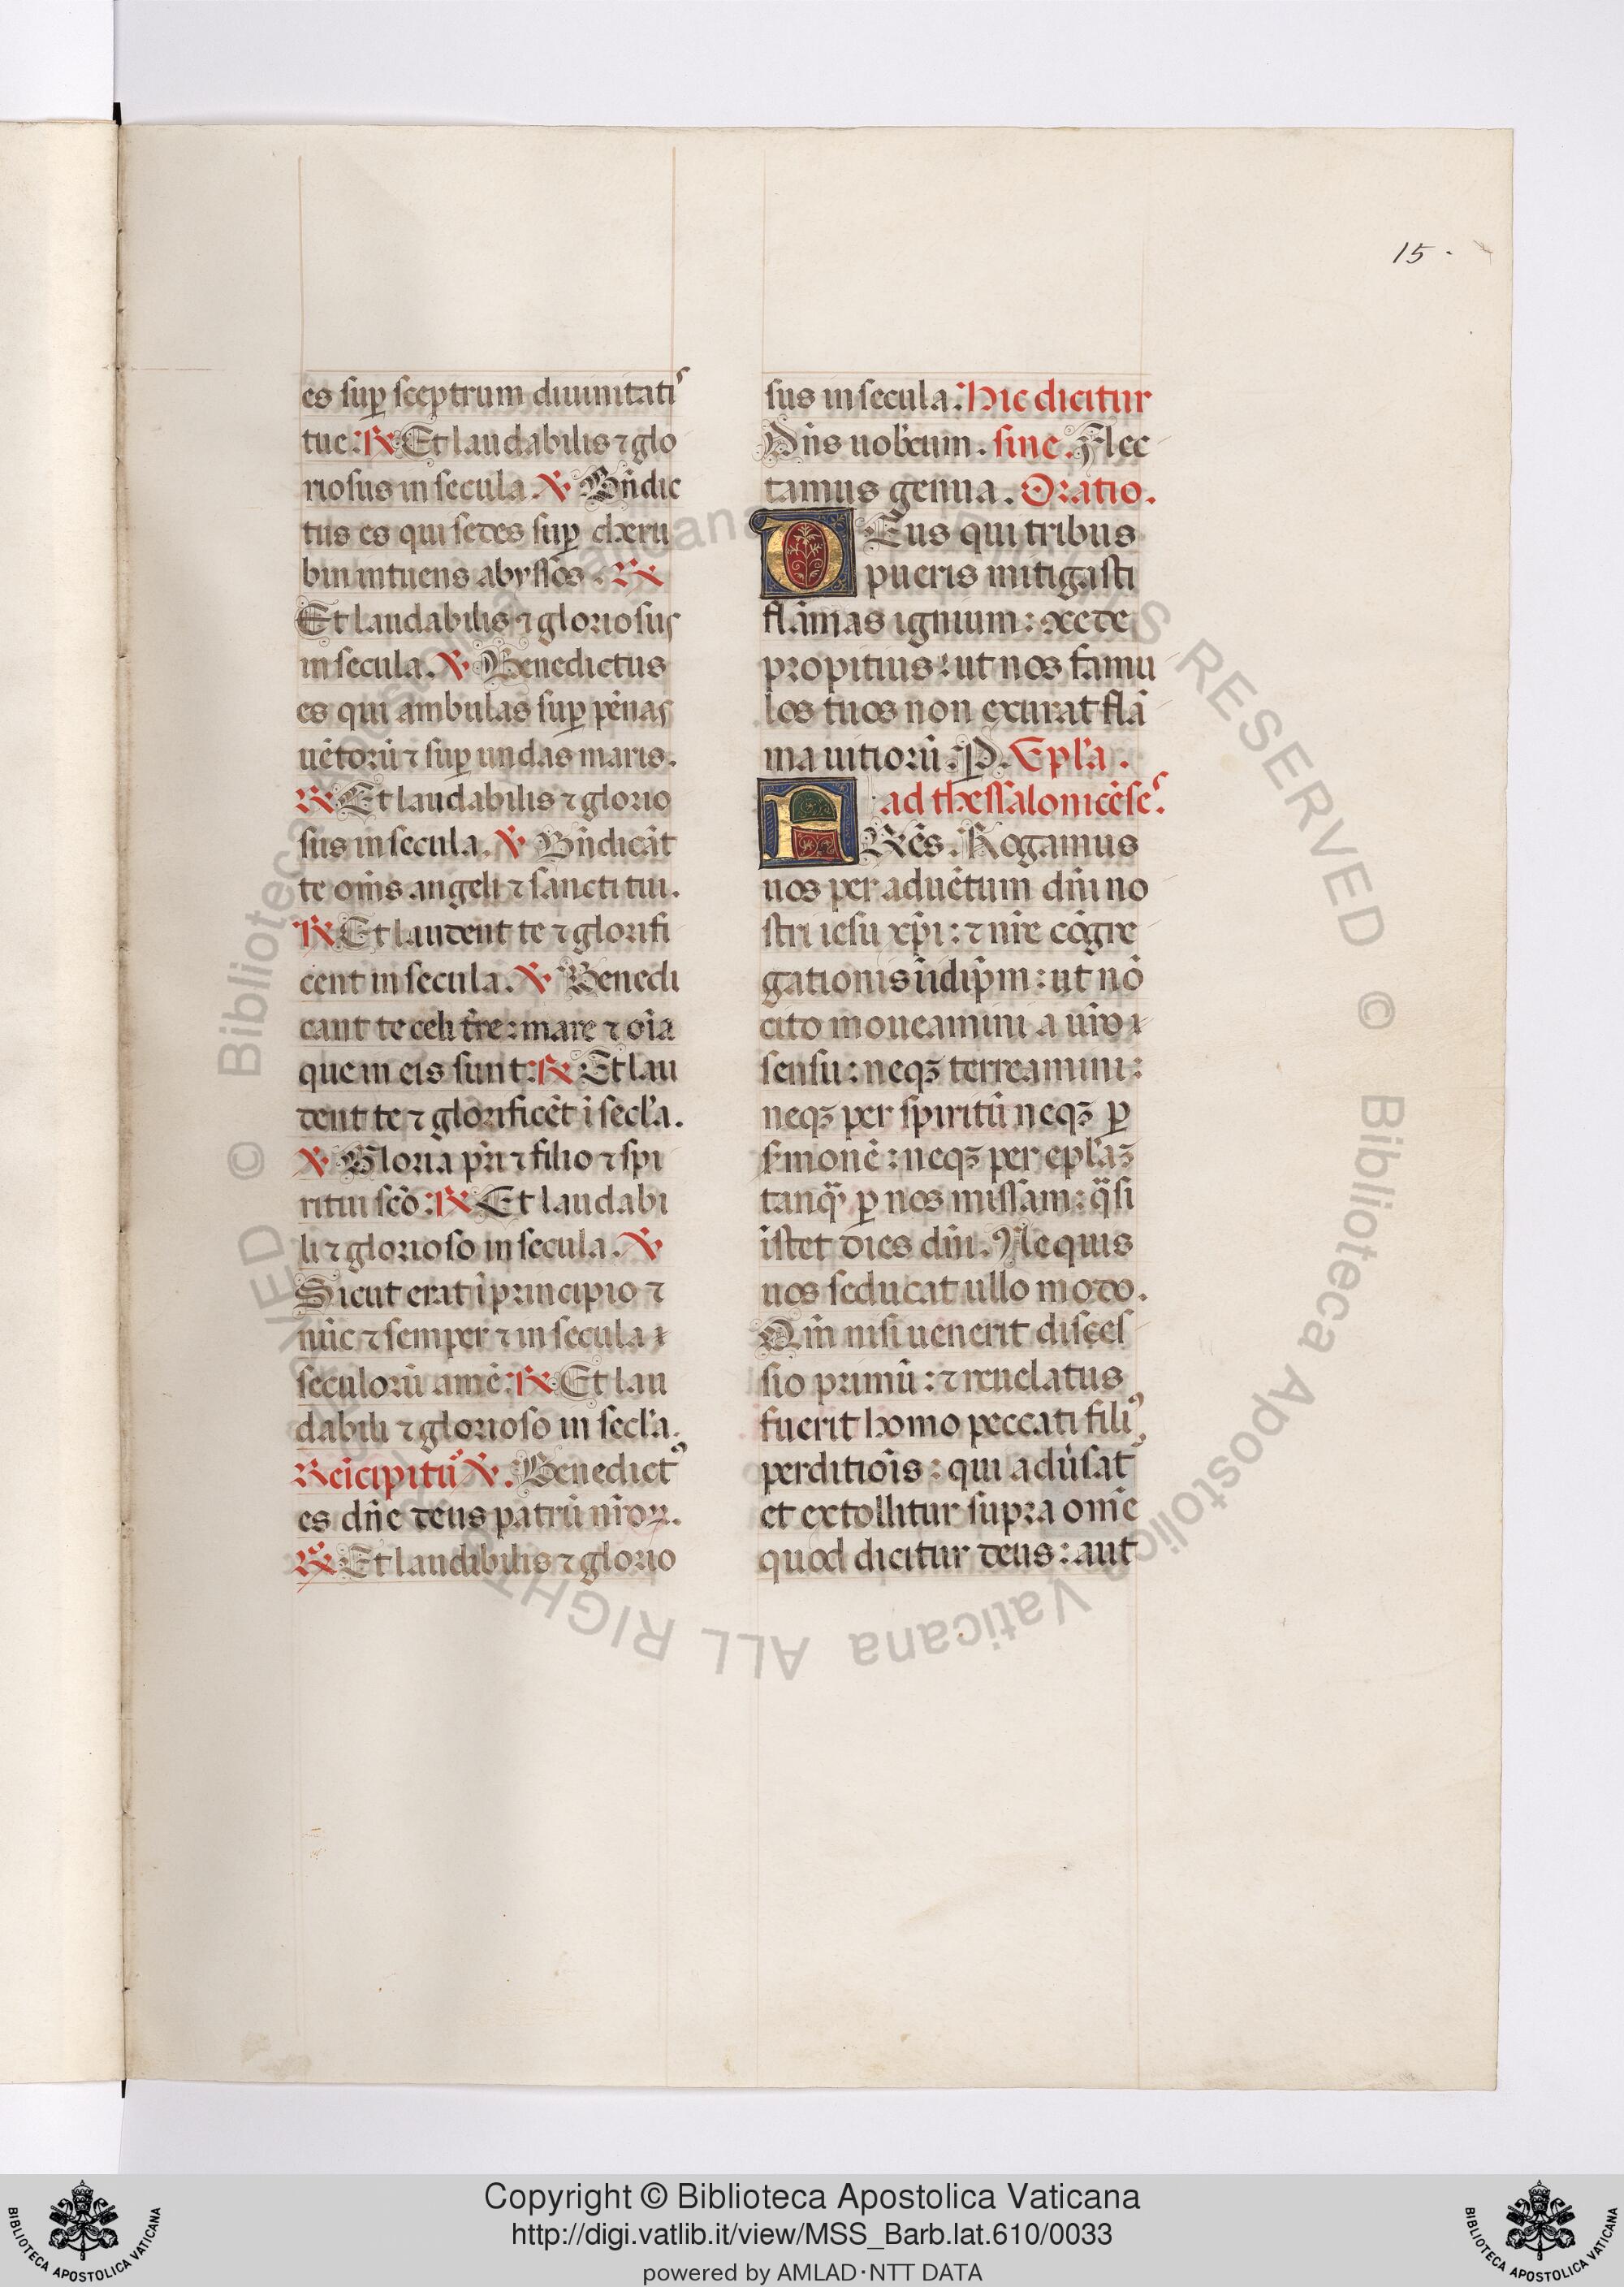 15.
es suꝑ sceptrum diuinitatis
tue. ℟ Et laudabilis ⁊ glo
riosus in secula. ℣ Bñdic
tus es qui sedes suꝑ cheru
bin intuens abyssos. ℟
Et laudabilis ⁊ gloriosus
in secula. ℣ Benedictus
es qui ambulas suꝑ pēnas
uētorū ⁊ suꝑ undas maris.
℟ Et laudabilis ⁊ glorio
sus in secula. ℣ Bñdicāt
te om̄s angeli ⁊ sancti tui.
℟ Et laudent te ⁊ glorifi
cent in secula. ℣ Benedi
cant te celi tr̄e: mare ⁊ oīa
que in eis sunt: ℟ Et lau
dent te ⁊ glorificēt ī secl'a.
℣ Gloria pr̄i ⁊ filio ⁊ spi
ritui scō: ℟ Et laudabi
li ⁊ glorioso in secula. ℣
Sicut erat ī principio ⁊
nūc ⁊ semper ⁊ in secula
seculorū amē: ℟ Et lau
dabili ⁊ glorioso in secl'a.
Reīcipitur ℣. Benedictꝰ
es dñe deus patrū nr̄oꝝ.
℟ Et laudibilis ⁊ glorio
sus in secula. Hic dicitur
Dñs uobcum. sine. Flec
tamus genua. Oratio.
DEus qui tribus
pueris mitigasti
flāmas ignium: ɔcede
propitius: ut nos famu
los tuos non exurat flā
ma uitiorū. P. Epl'a.
ad thessalonicēses.
FRēs. Rogamus
uos per aduētum dñi no
stri iesu xp̄i: ⁊ nr̄e cōgre
gationis ī idip̄m: ut nō
cito moueamini a ur̄o
sensu: neqꝫ terreamini:
neqꝫ per spiritū neqꝫ ꝑ
s'monē: neqꝫ per epl'aꝫ
tanqᷓ ꝑ nos missam: qᷓsi
istet dies dñi. Ne quis
uos seducat ullo modo.
Qm̄ nisi uenerit disces
sio primū: ⁊ reuelatus
fuerit homo peccati filiꝰ
perditiōis: qui adūsat
et extollitur supra om̄e
quod dicitur deus: aut
© Biblioteca Apostolica Vaticana ALL RIGHTS RESERVED © Biblioteca Apostolica Vaticana ALL RIGHT
BIBLIOTECA APOSTOLICA VATICANA
Copyright © Biblioteca Apostolica Vaticana
http://digi.vatlib.it/view/MSS_Barb.lat.610/0033
powered by AMLAD·NTT DATA
BIBLIOTECA APOSTOLICA VATICANA